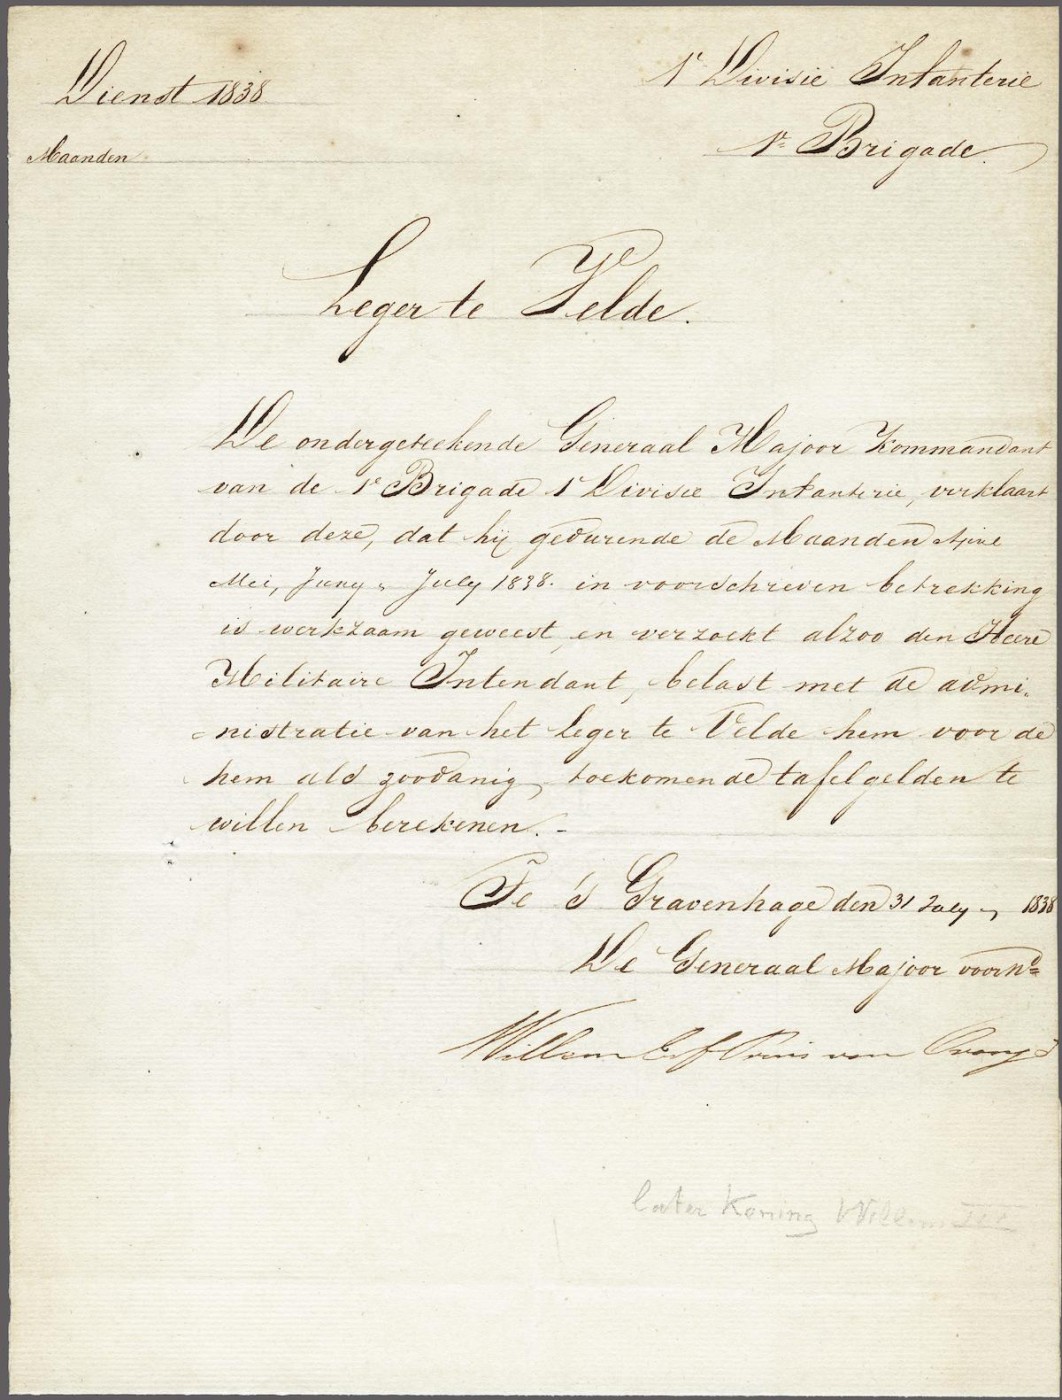 Dienst 1838
1e Divisie Infanterie
Maanden
1e Brigade.
Leger te Velde.
De ondergeteekende Generaal Majoor Kommandant
van de 1e Brigade 1e Divisie Infanterie, verklaart
door deze, dat hij gedurende de Maanden April
Mei, Juny & July 1838. in voorschreven betrekking
is werkzaam geweest, en verzoekt alzoo den Heere
Militaire Intendant, belast met de admi-
nistratie van het Leger te Velde hem voor de
hem als zoodanig, toekomende tafelgelden te
willen berekenen. -
Te 's Gravenhage den 31 July 1838
De Generaal Majoor voornd
Willem Erf Prins van Oranje
later Koning Willem III